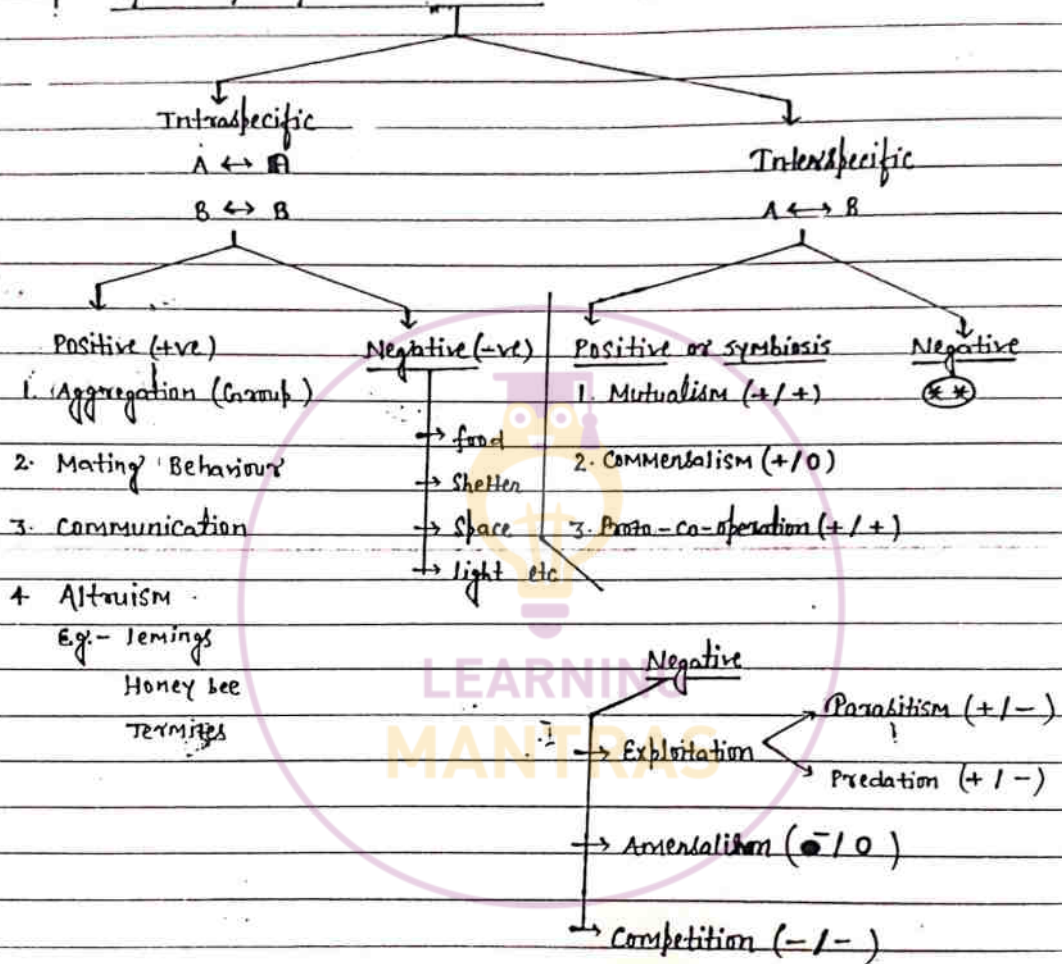 Intraspecific
A ↔ A
B ↔ B
Interspecific
A ↔ B
Positive (+ve)
1. Aggregation (Group)
2. Mating Behaviour
3. Communication
4 Altruism
E.g.- lemings
Honey bee
Termites
Negative (-ve)
→ food
→ Shelter
→ Space
→ light etc
Positive or symbiosis
1. Mutualism (+/+)
2. Commensalism (+/0)
3. Proto-co-operation (+/+)
Negative
**
Negative
→ Exploitation
Parasitism (+/-)
Predation (+/-)
→ Amensalism (-/0)
→ Competition (-/-)
LEARNING
MANTRAS